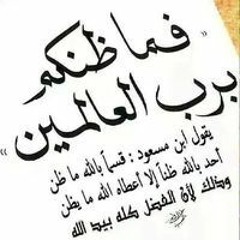 « فما ظنكم
برب العالمين »
يقول ابن مسعود : قسماً بالله ما ظن
أحد بالله ظناً إلا أعطاه الله ما يظن
وذلك لأن الفضل كله بيد الله